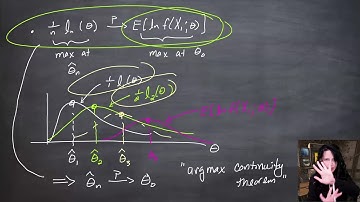 · 1/n ln(θ) P→ E[ln f(X1;θ)]
max at max at θ0
θ̂n
1/1 l1(θ)
1/2 l2(θ)
θ
θ̂1 θ̂2 θ̂3
⟹ θ̂n P→ θ0
"argmax continuity
theorem"